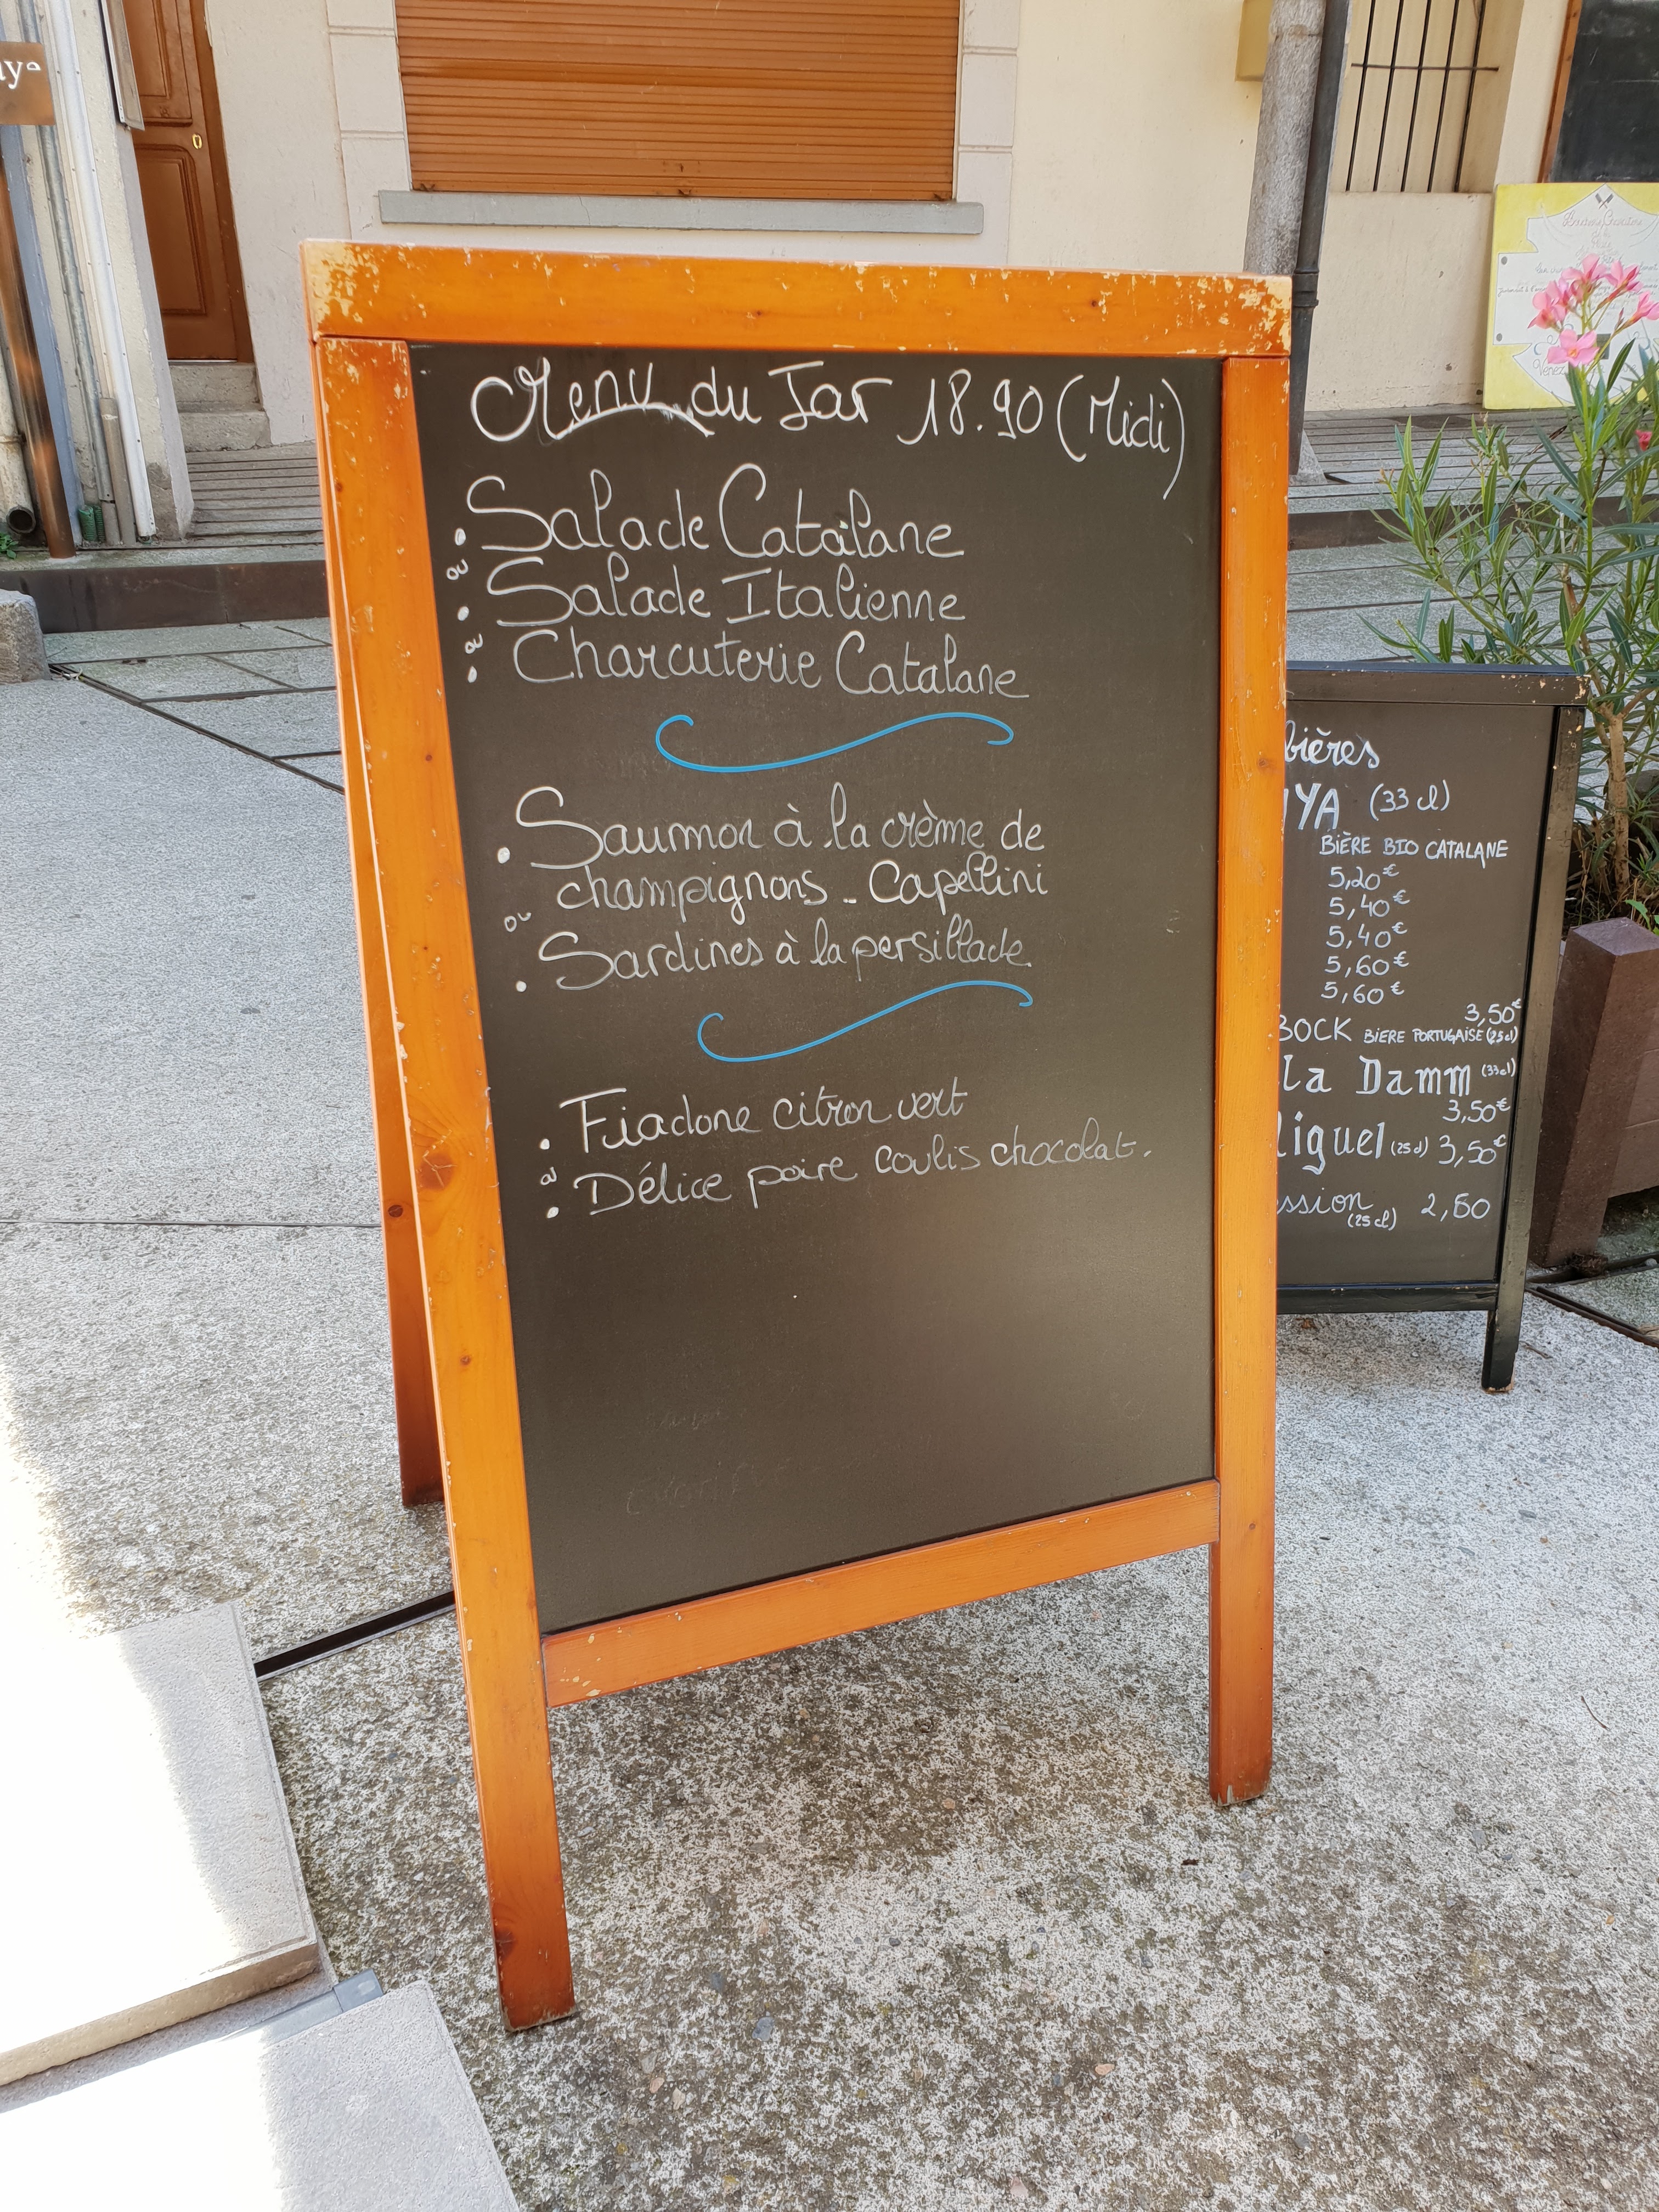 Menu du Jar 18.90 (Midi)
• Salade Catalane
ou
• Salade Italienne
ou
• Charcuterie Catalane
• Saumon à la crème de
champignons - Capellini
ou
• Sardines à la persillade
• Fiadone citron vert
ou
• Délice poire coulis chocolat.
bières
YA (33 cl)
BIÈRE BIO CATALANE
5,20€
5,40€
5,40€
5,60€
5,60€
3,50€
BOCK BIERE PORTUGAISE (25cl)
la Damm (33cl)
3,50€
iguel (25cl) 3,50€
ssion (25cl) 2,50